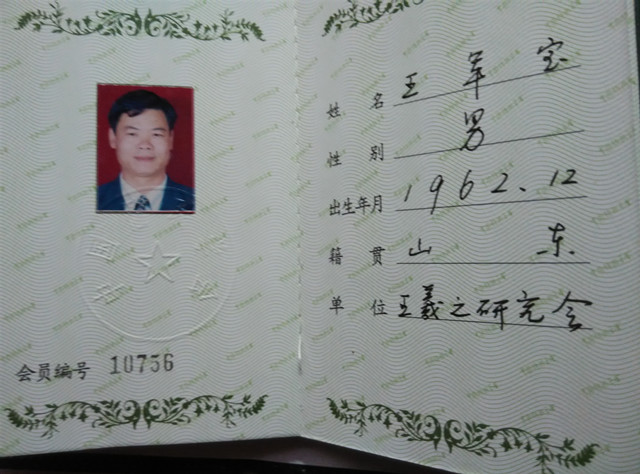 会员编号 10756
姓名 王军宝
性别 男
出生年月 1962.12
籍贯 山东
单位 王羲之研究会